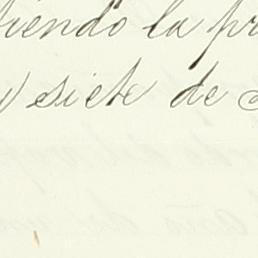 tiendo la pr
y siete de